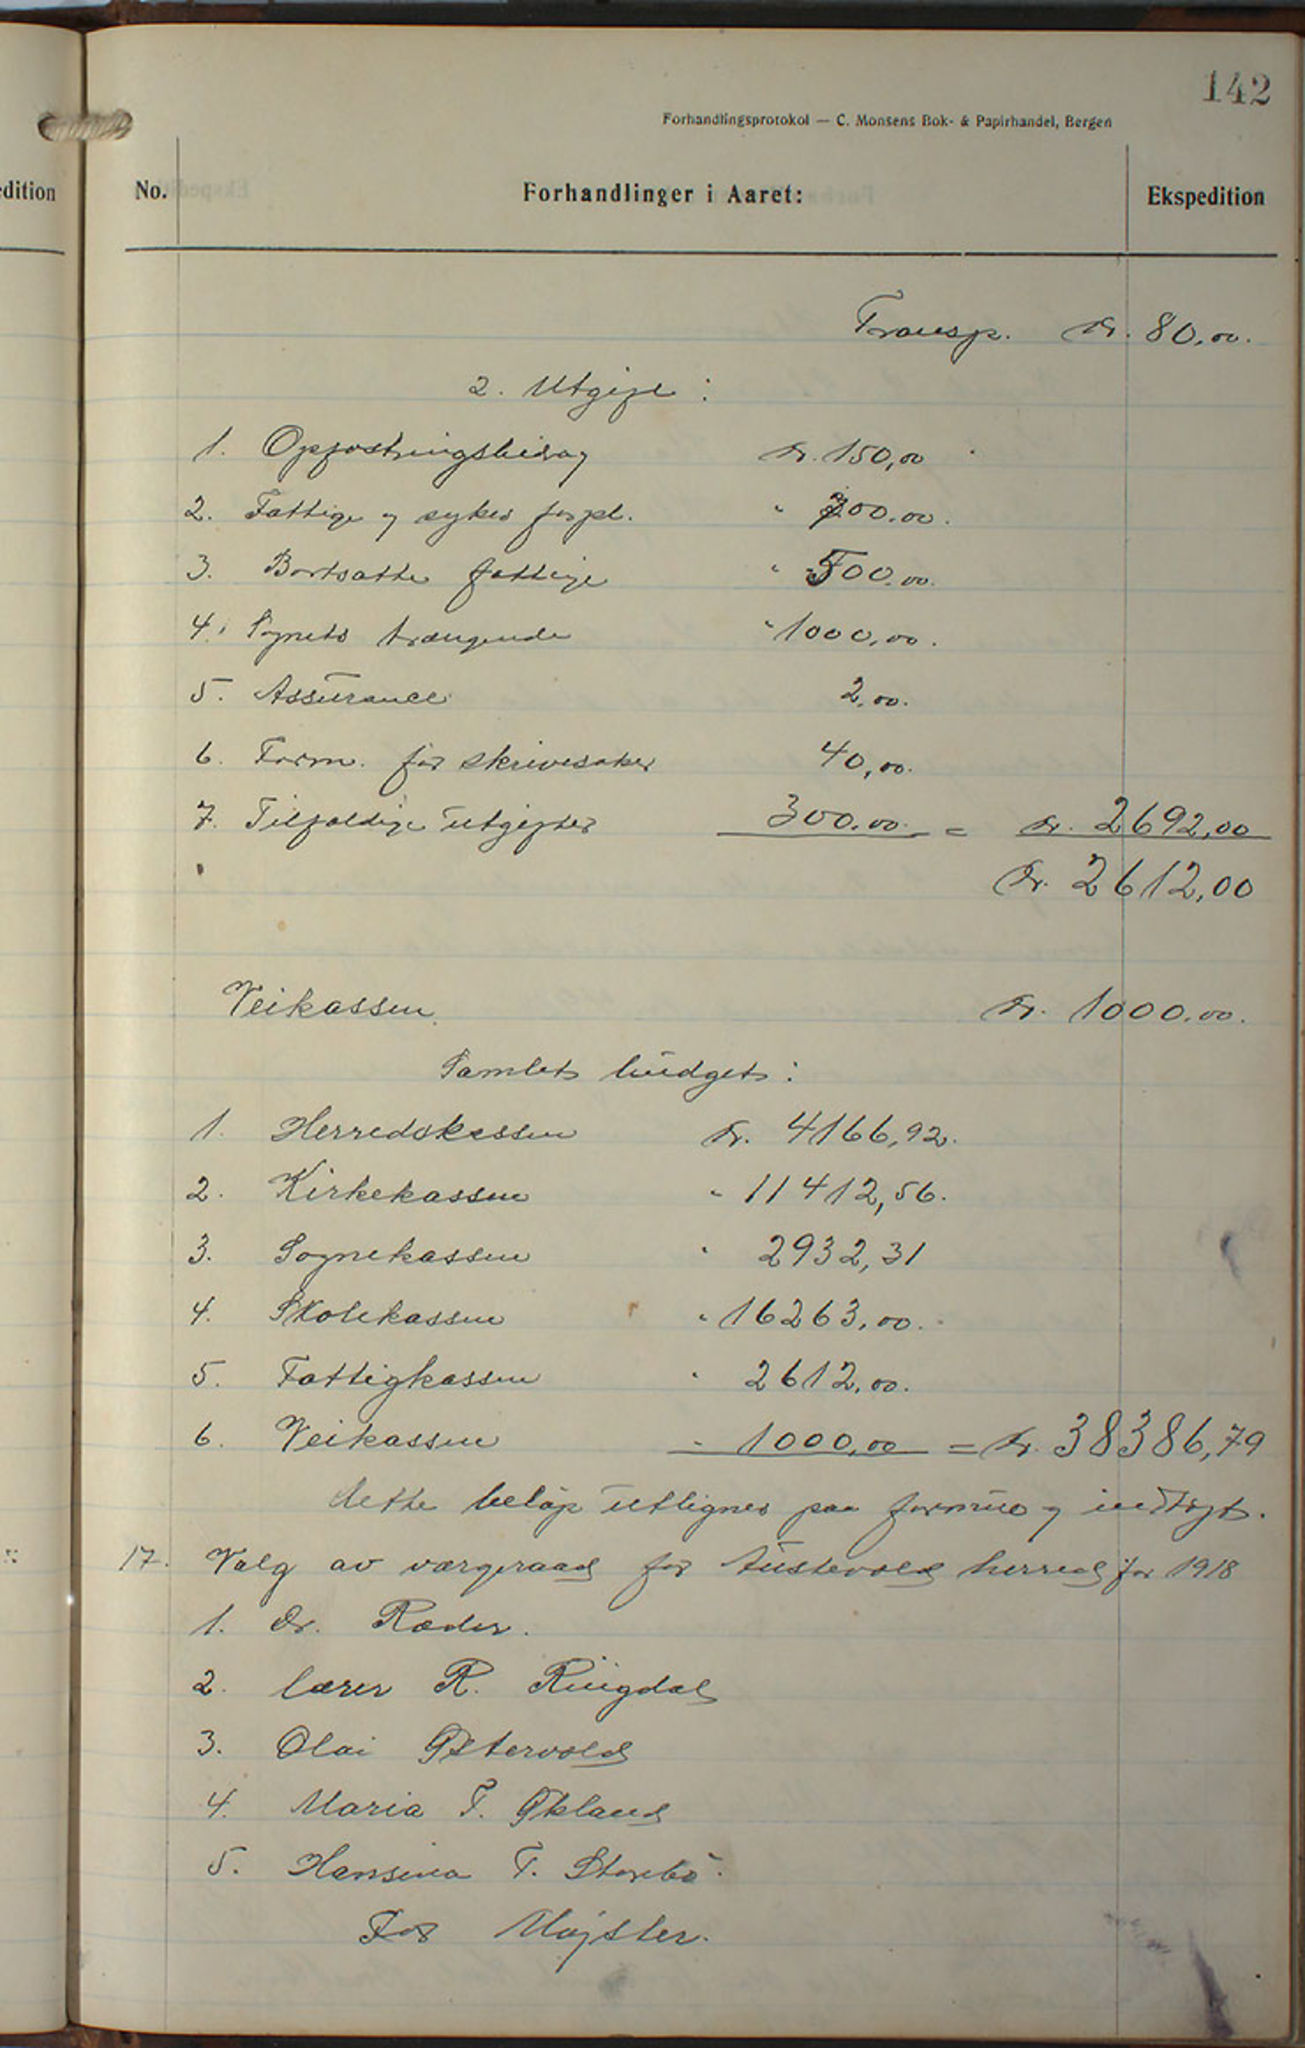 142
Forhandlingsprotokol — C. Monsens Bok- & Papirhandel, Bergen
edition No. Forhandlinger i Aaret: Ekspedition
Transp. Kr. 80,00.
2. Utgift:
1. Opfostringsbidrag Kr. 150,00
2. Fattige og sykes forpl. " 700.00.
3. Bortsatte fattige " 500.00.
4. Sognets trængende " 1000,00.
5. Assurance 2,00.
6. Form. for skrivesaker 40,00.
7. Tilfældige utgifter 300.00. = Kr. 2692,00
Kr. 2612,00
Veikassen Kr. 1000.00.
Samlet budget:
1. Herredskassen Kr. 4166,92.
2. Kirkekassen " 11412,56.
3. Sognekassen " 2932,31
4. Skolekassen " 16263,00.
5. Fattigkassen " 2612,00.
6. Veikassen " 1000,00 = Kr. 38386,79
dette beløp utlignes paa formue og indtægt.
17. Valg av værgeraad for Austevold herred for 1918
1. Dr. Ræder.
2. lærer R. Ringdal
3. Olai Østervold
4. Maria T. Økland
5. Hansina T. Storebø.
For Møgster.